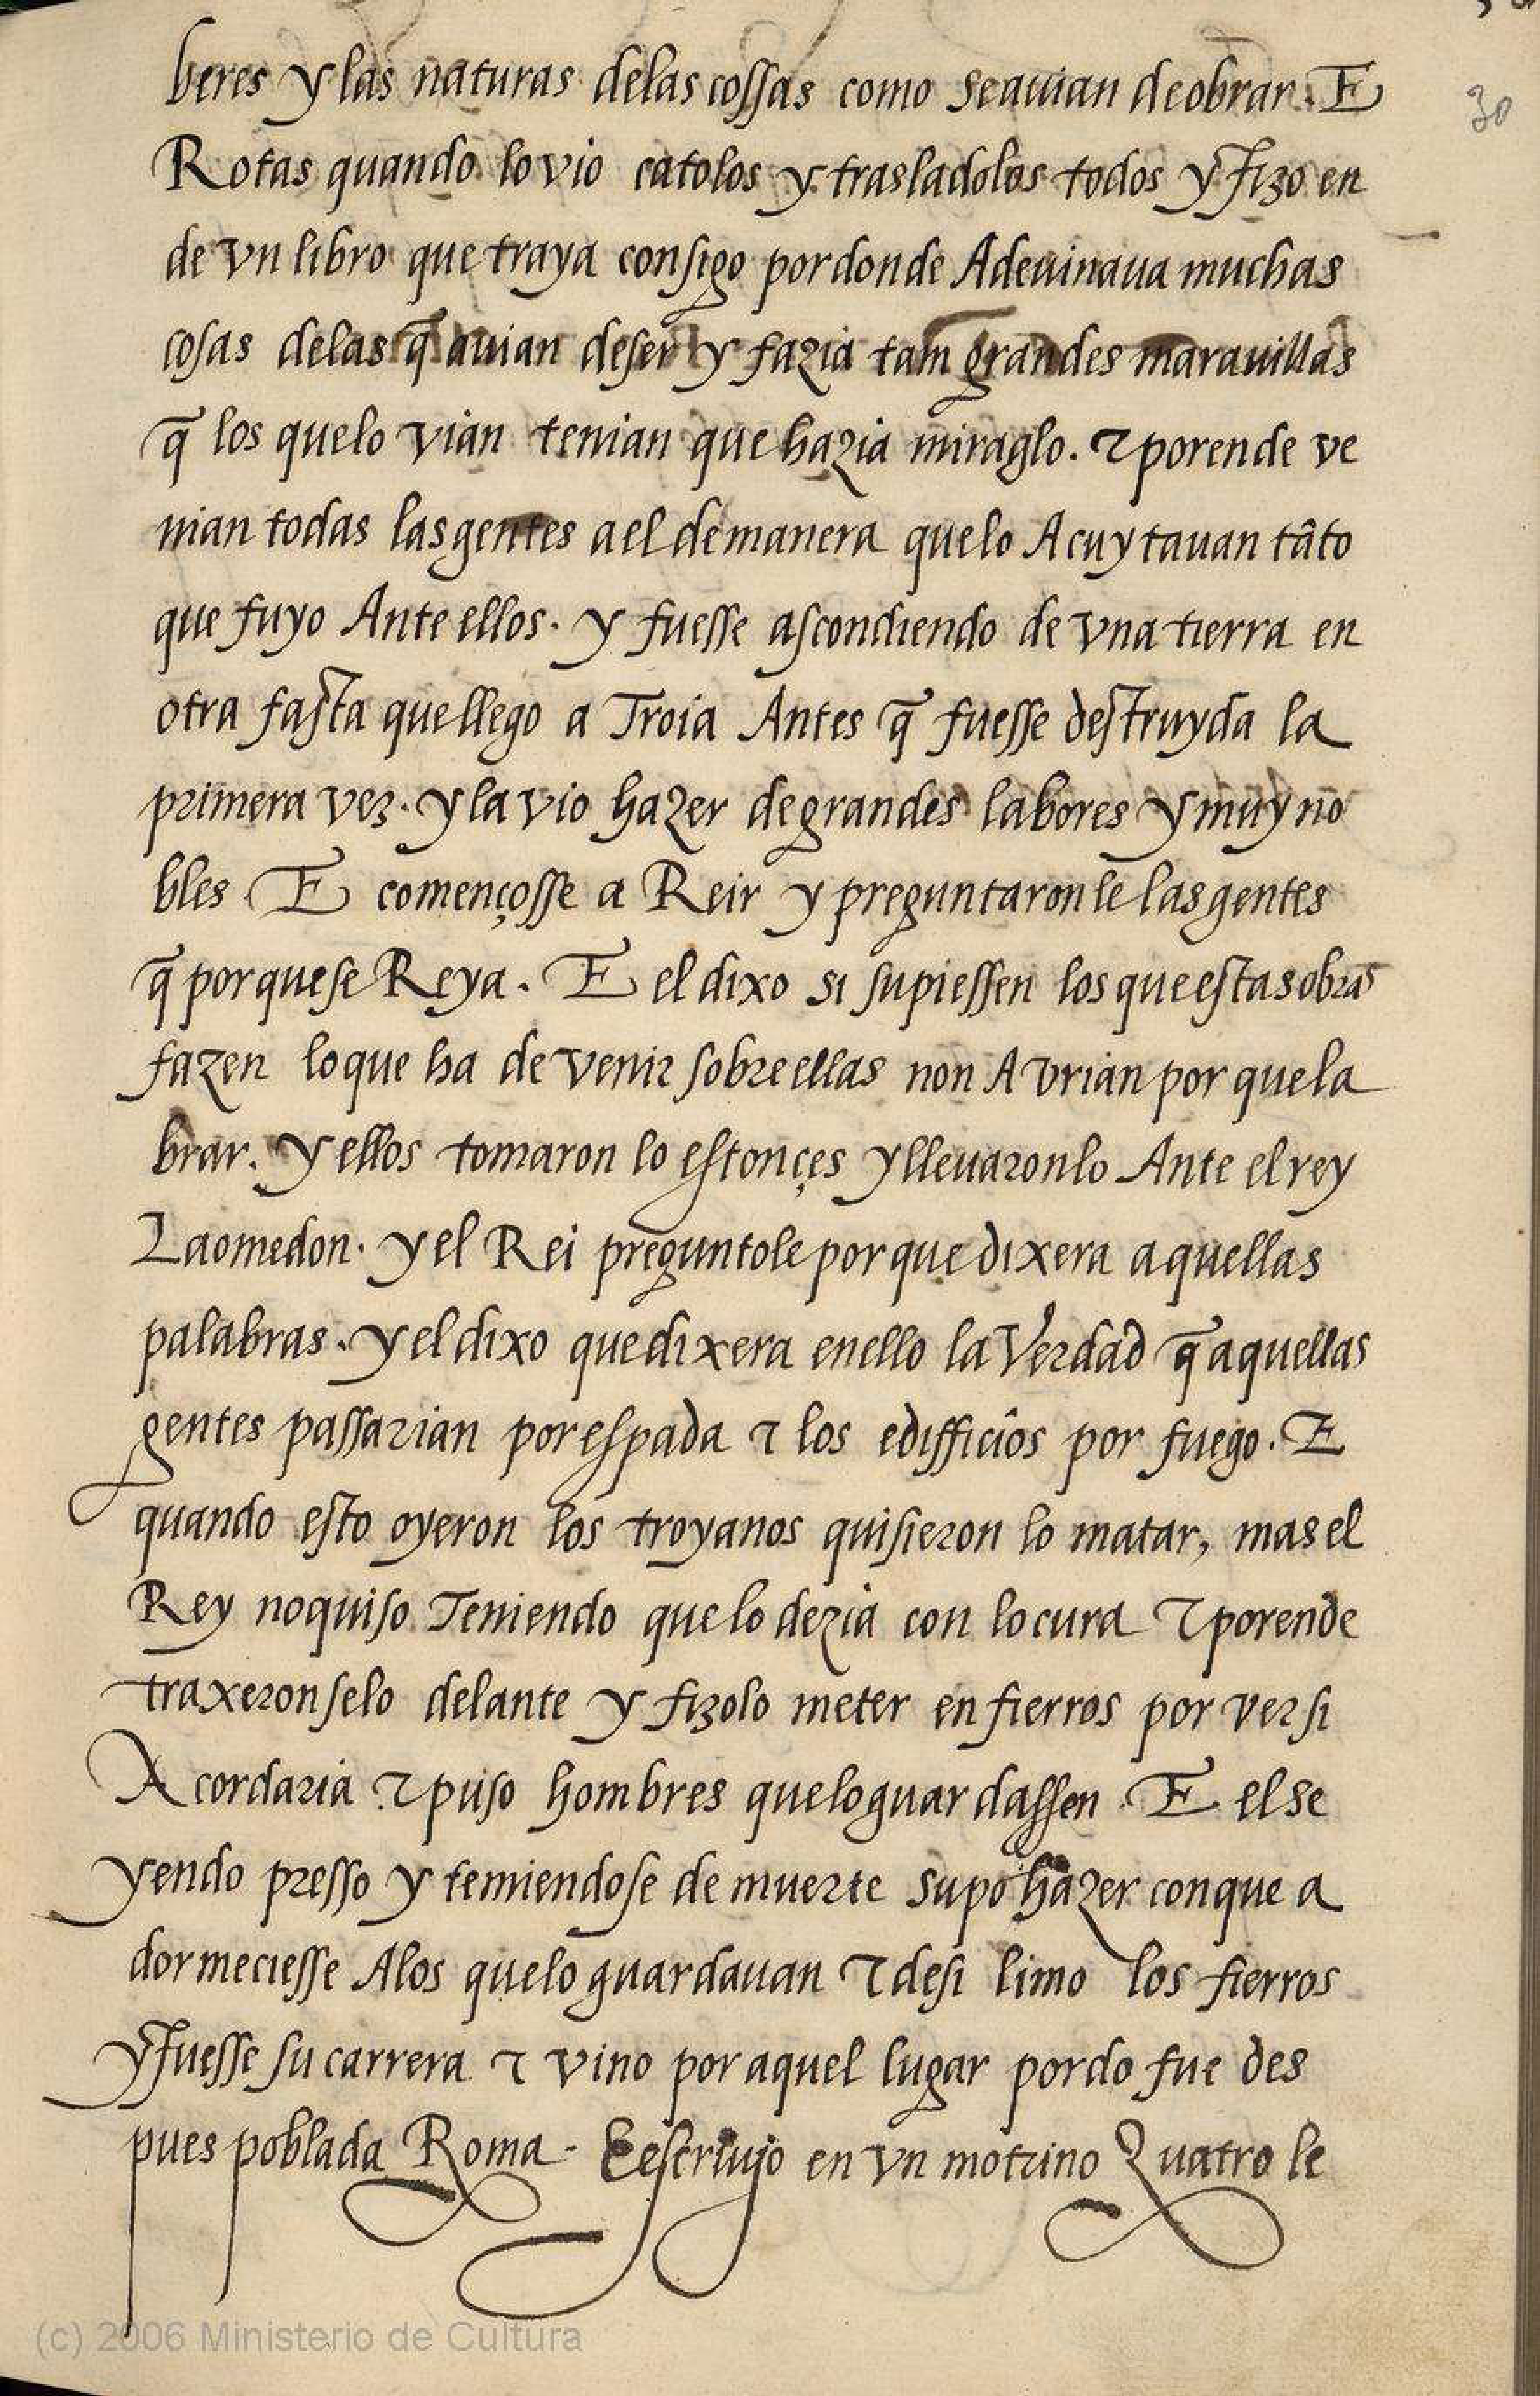 30
beres y las naturas delas cossas como seauian deobrar. E
Rotas quando lo vio catolos y trasladolos todos y fizo en
de vn libro que traya consigo pordonde Adeuinaua muchas
cosas delas q̃ auian deser y fazia tam grandes marauillas
q̃ los quelo vian tenian que hazia miraglo. τ porende ve
nian todas lasgentes a el demanera quelo Acuytauan tãto
que fuyo Ante ellos. y fuesse ascondiendo de vna tierra en
otra fasta quellego a Troia Antes q̃ fuesse destruyda la
primera vez. y la vio hazer degrandes labores y muy no
bles E començosse a Reir y preguntaronle lasgentes
q̃ porquese Reya. E el dixo si supiessen los que estas obras
fazen loque ha de venir sobre ellas non Avrian por quela
brar. y ellos tomaron lo estonçes y lleuaronlo Ante el rey
Laomedon. y el Rei preguntole porque dixera aquellas
palabras. y el dixo quedixera enello la Verdad q̃ aquellas
gentes passarian por espada τ los edifficios por fuego. E
quando esto oyeron los troyanos quisieron lo matar, mas el
Rey noquiso Teniendo quelo dezia con locura τ porende
traxeronselo delante y fizolo meter en fierros por ver si
Acordaria τ puso hombres queloguardassen E el se
yendo presso y temiendose de muerte supo hazer conque a
dormeciesse Alos quelo guardauan τ desi limo los fierros
y fuesse su carrera τ vino por aquel lugar pordo fue des
pues poblada Roma - E escriuyo en vn motrino Quatro le
(c) 2006 Ministerio de Cultura